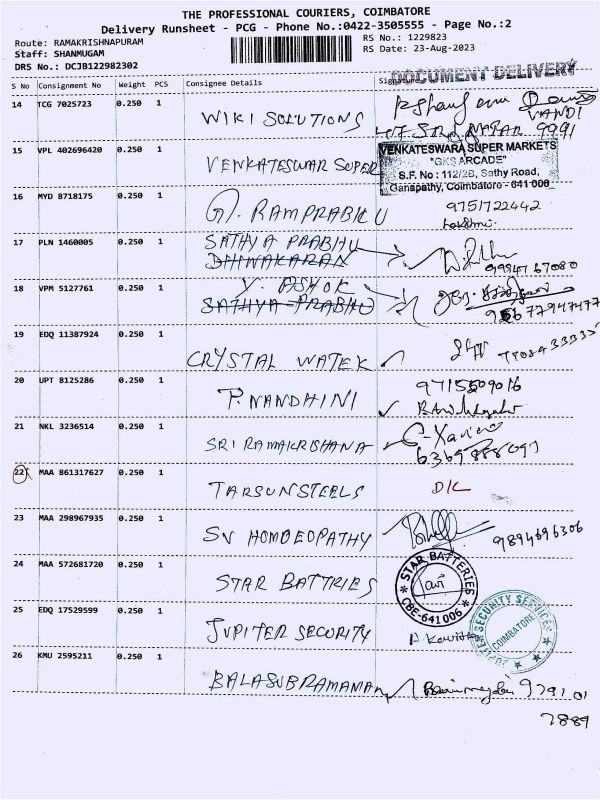 THE PROFESSIONAL COURIERS, COIMBATORE
Delivery Runsheet - PCG - Phone No.:0422-3505555 - Page No.:2
Route: RAMAKRISHNAPURAM
RS No.: 1229823
Staff: SHANMUGAM
RS Date: 23-Aug-2023
DRS No.: DCJB122982302
S No Consignment No Weight PCS Consignee Details Signature
DOCUMENT DELIVERY
14 TCG 7025723 0.250 1 WIKI SOLUTIONS
VANDI
9991
15 VPL 402696420 0.250 1 VENKATESWAR SUPER
VENKATESWARA SUPER MARKETS
"GKS ARCADE"
S.F. No : 112/2B, Sathy Road,
Ganapathy, Coimbatore - 641 006
16 MYD 8718175 0.250 1 G. RAMPRABHU 9751722442
17 PLN 1460005 0.250 1 SATHYA PRABHU
DHIWAKARAN
18 VPM 5127761 0.250 1 V. ASHOK
SATHYA PRABHU
19 EDQ 11387924 0.250 1 CRYSTAL WATER
20 UPT 8125286 0.250 1 P. NANDHINI
21 NKL 3236514 0.250 1 SRI RAMAKRISHANA
22 MAA 861317627 0.250 1 TARSUNSTEELS D/L
23 MAA 298967935 0.250 1 SV HOMOEOPATHY 9894696306
24 MAA 572681720 0.250 1 STAR BATTRIES
STAR BATTERIES
CBE-641006
25 EDQ 17529599 0.250 1 JUPITER SECURITY
JUPITER SECURITY SERVICES
COIMBATORE
26 KMU 2595211 0.250 1 BALASUBRAMANIAN 9791 01
7889